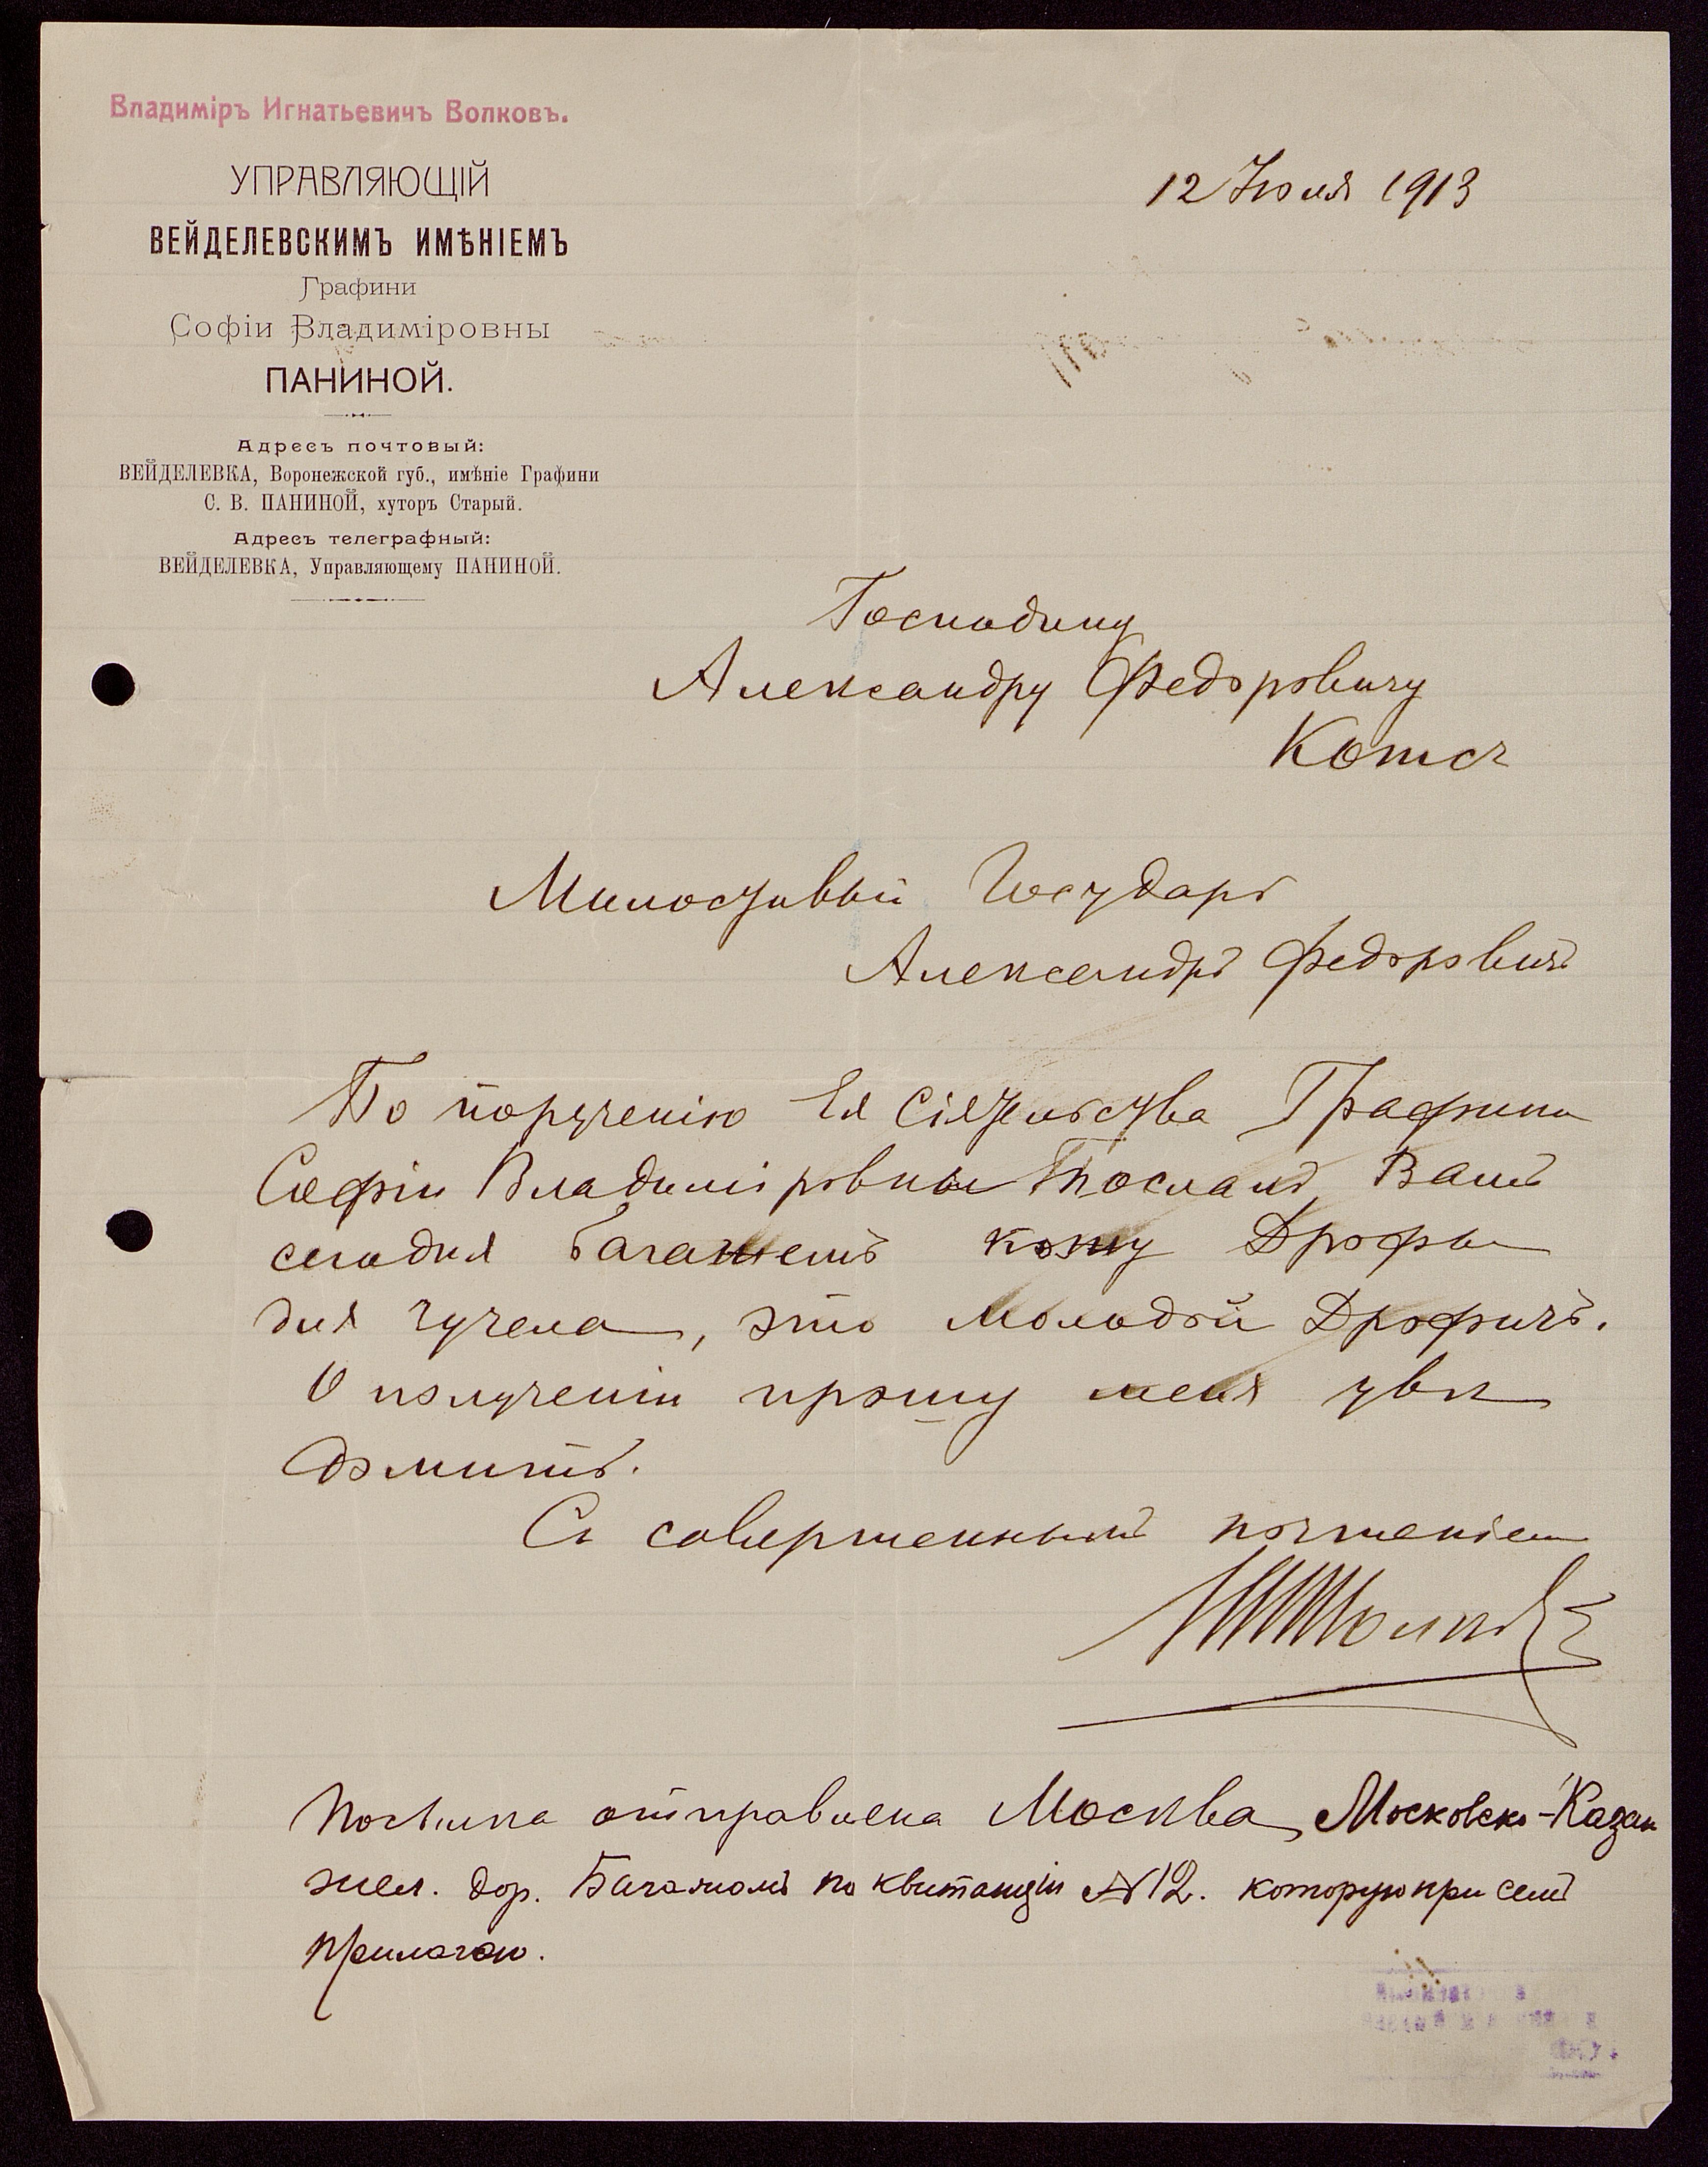 Владиміръ Игнатьевичъ Волковъ.
УПРАВЛЯЮЩІЙ
ВЕЙДЕЛЕВСКИМЪ ИМѢНІЕМЪ
Графини
Софіи Владиміровны
ПАНИНОЙ.
Адресъ почтовый:
ВЕЙДЕЛЕВКА, Воронежской губ., имѣніе Графини
С. В. ПАНИНОЙ, хуторъ Старый.
Адресъ телеграфный:
ВЕЙДЕЛЕВКА, Управляющему ПАНИНОЙ.
12 Июля 1913
Господину
Александру Федоровичу
Котсъ
Милостивый Государь
Александръ Федоровичъ
По порученію Ея Сіятельства Графини
Софіи Владиміровны Посланъ Вамъ
сегодня багажемъ кожу Дрофы
для чучела, это молодой Дрофичъ.
О полученіи прошу меня увѣ
домить.
Съ совершеннымъ почтеніем
Посылка отправлена Москва, Московско-Казан
жел. дор. Багажомъ по квитанціи № 12. которую при семъ
прилагаю.